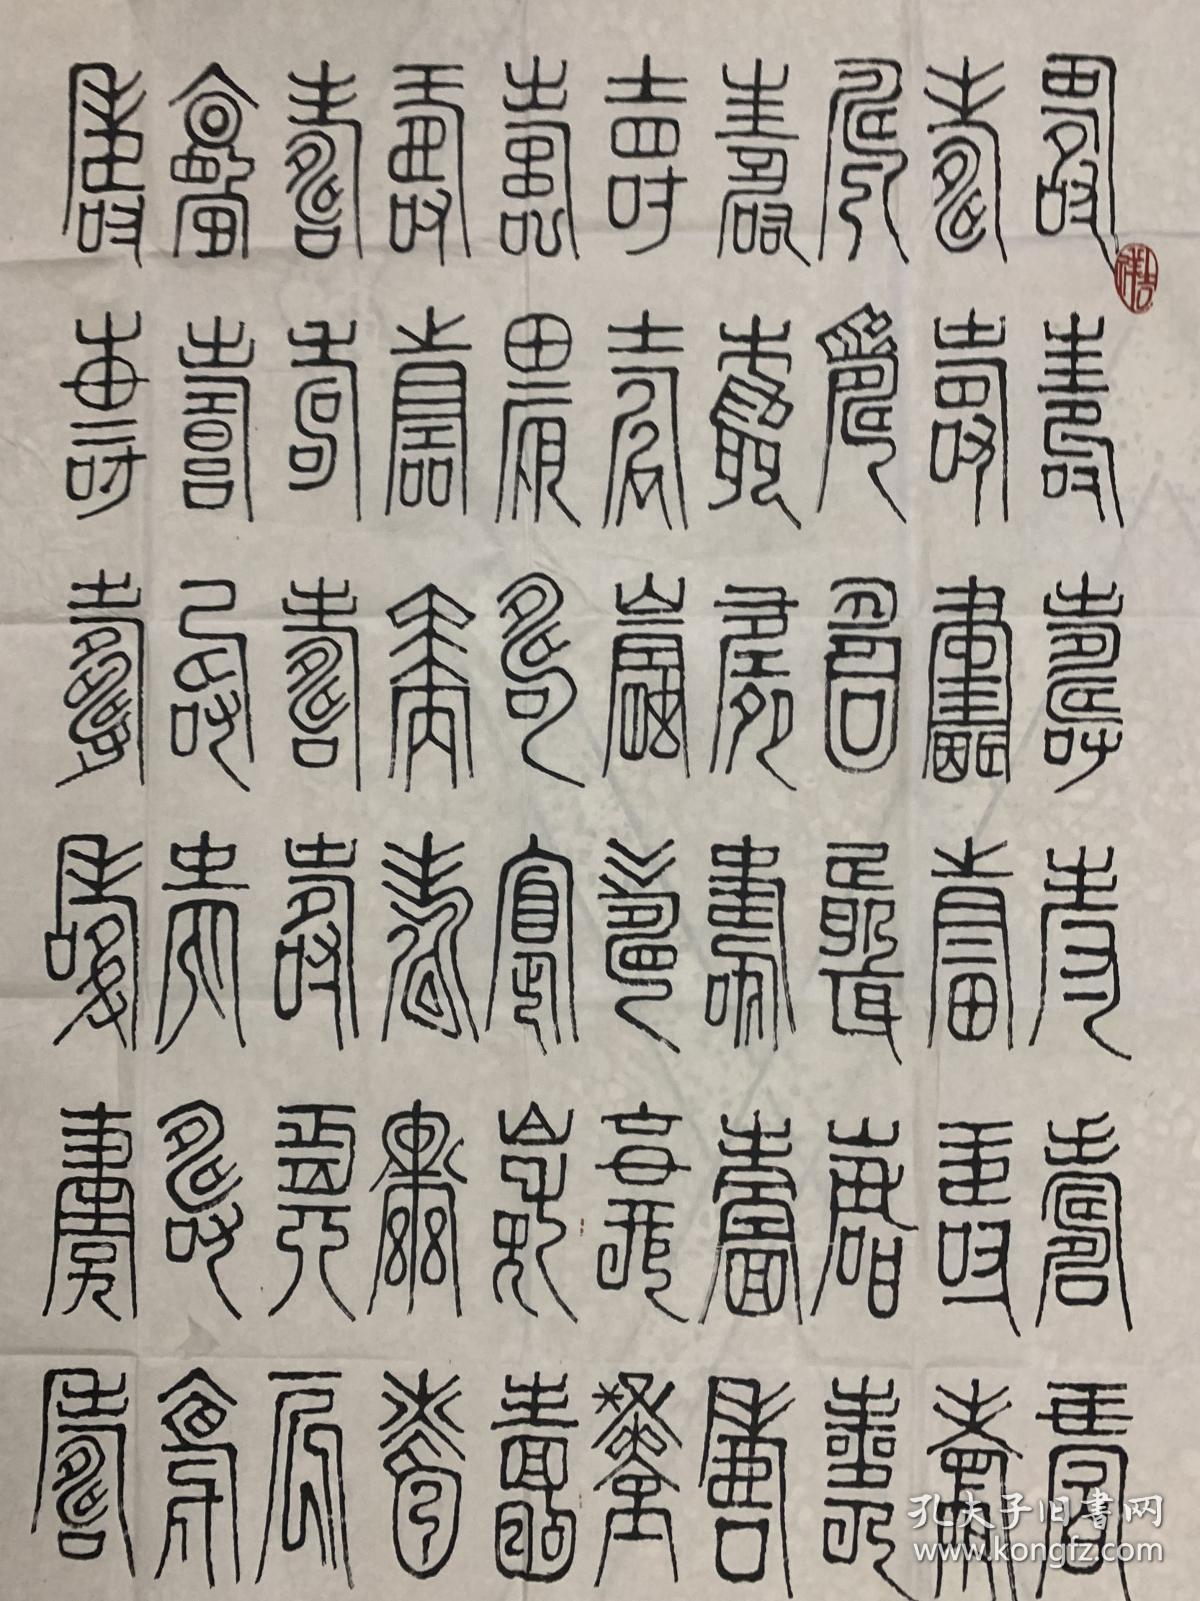 壽壽壽壽壽壽
壽壽壽壽壽壽
壽壽壽壽壽壽
壽壽壽壽壽壽
壽壽壽壽壽壽
壽壽壽壽壽壽
壽壽壽壽壽壽
壽壽壽壽壽壽
壽壽壽壽壽壽
壽壽壽壽壽壽
吉祥
孔夫子旧书网
www.kongfz.com